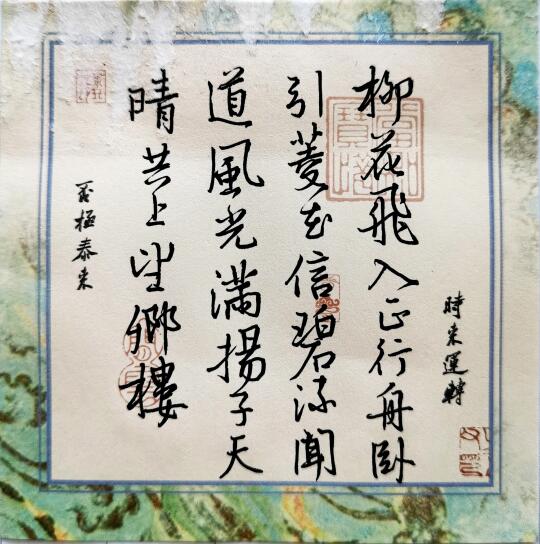 時来運轉
柳花飛入正行舟臥
引菱花信碧流聞
道風光滿揚子天
晴共上望鄉樓
否極泰来